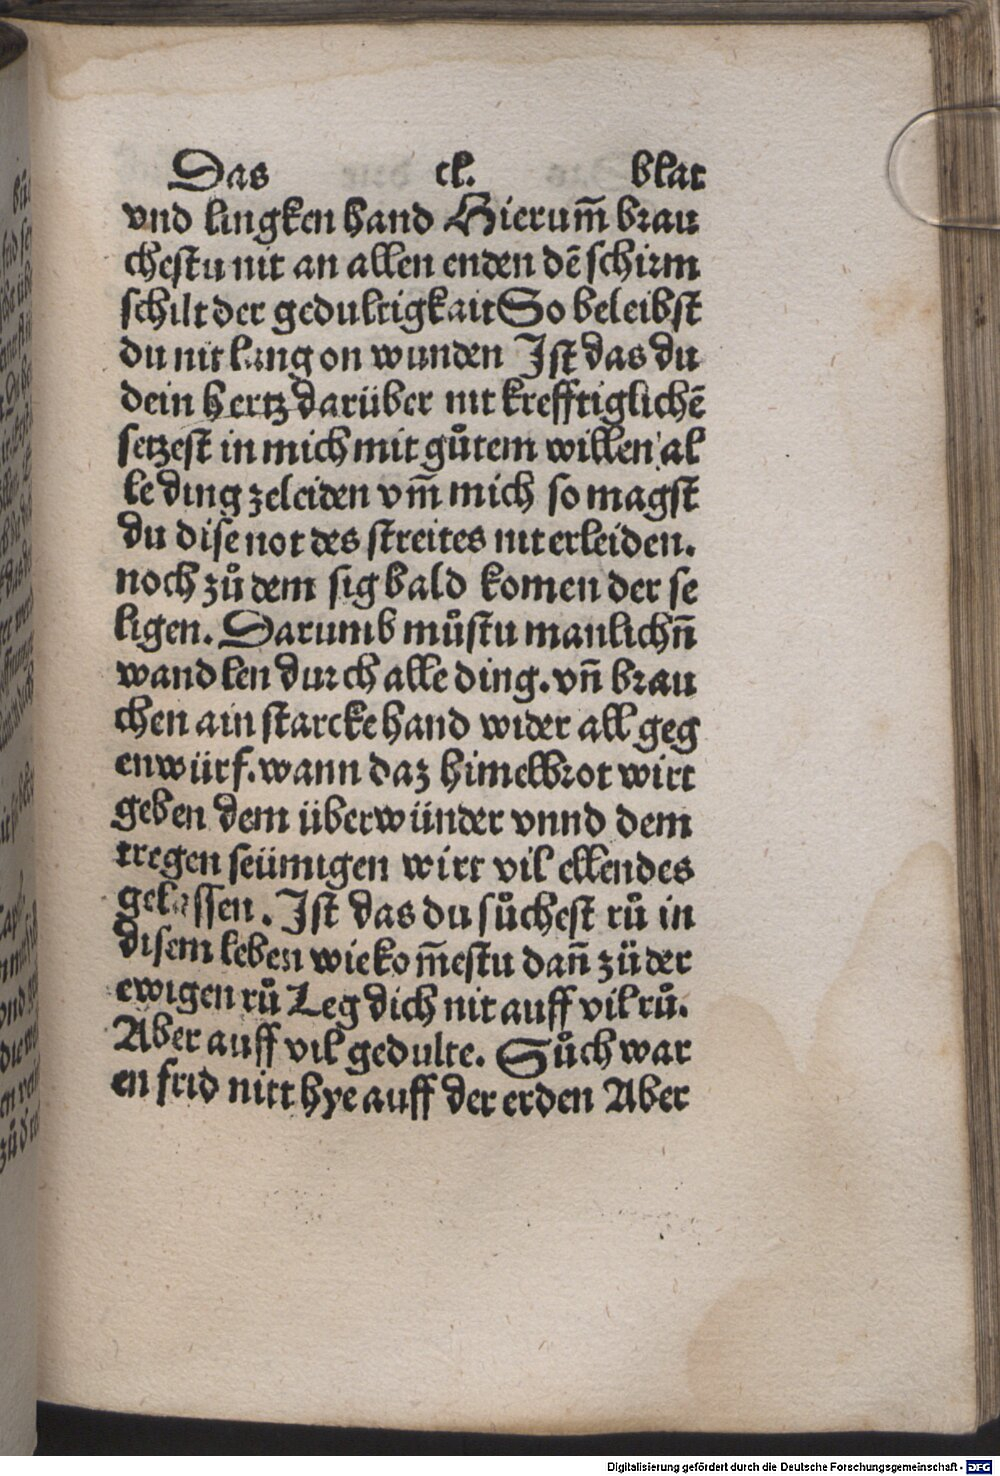 Das cl. blat
vnd lingken hand Hierum̄ brau
chestu nit an allen enden dē schirm
schilt der gedultigkait So beleibst
du nit lang on wunden Ist das du
dein hertz darüber nit krefftiglichē
setzest in mich mit gůtem willen al
le ding zeleiden vm̄ mich so magst
du dise not des streites nit erleiden.
noch zů dem sig bald komen der se
ligen. Darumb můstu manlichn̄
wandlen durch alle ding. vn̄ brau
chen ain starcke hand wider all geg
enwürf. wann daz himelbrot wirt
geben dem überwünder vnnd dem
tregen seümigen wirt vil ellendes
gelassen. Ist das du sůchest rů in
disem leben wie kom̄estu dan̄ zü der
ewigen rů Leg dich nit auff vil rů.
Aber auff vil gedulte. Sůch war
en frid nitt hye auff der erden Aber
Digitalisierung gefördert durch die Deutsche Forschungsgemeinschaft - DFG